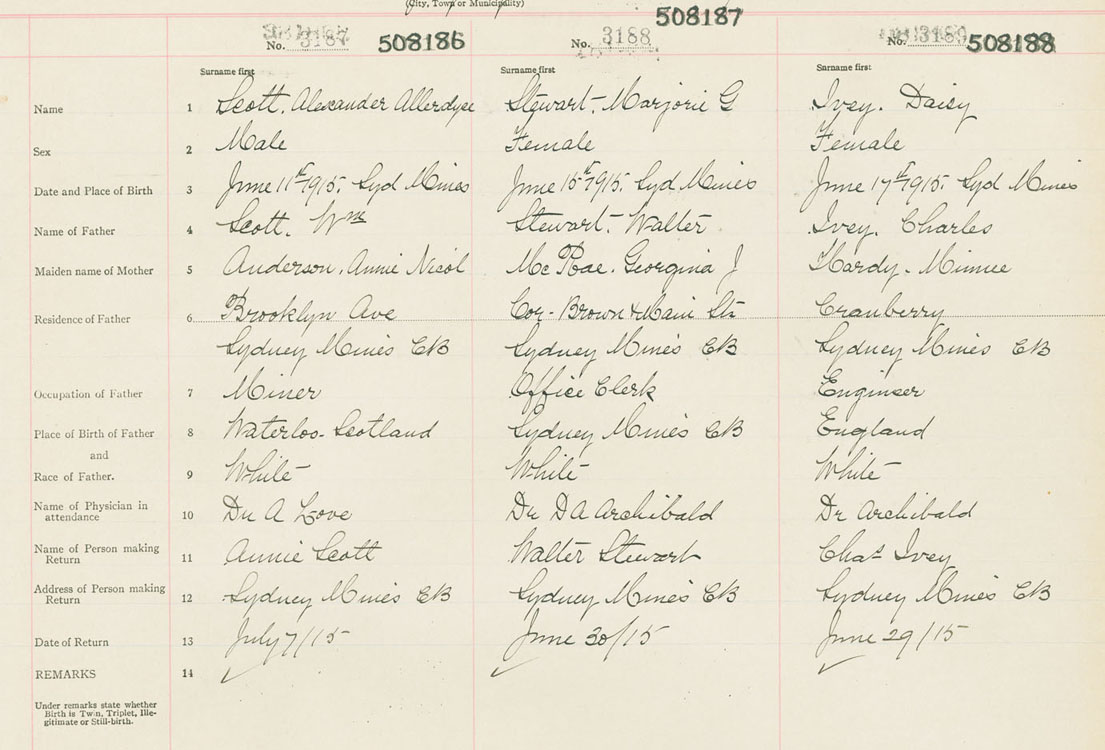 (City, Town or Municipality)
No. 3187 508186 No. 3188 508187 No. 3189 508188
Surname first Surname first Surname first
Name 1 Scott, Alexander Allerdyce Stewart, Marjorie G Ivey, Daisy
Sex 2 Male Female Female
Date and Place of Birth 3 June 11th 1915, Syd Mines June 15th 1915, Syd Mines June 17th 1915, Syd Mines
Name of Father 4 Scott, Wm Stewart, Walter Ivey, Charles
Maiden name of Mother 5 Anderson, Annie Nicol McRae, Georgina J Hardy, Minnie
Residence of Father 6 Brooklyn Ave Cor- Brown & Main Sts Cranberry
Sydney Mines CB Sydney Mines CB Sydney Mines CB
Occupation of Father 7 Miner Office Clerk Engineer
Place of Birth of Father 8 Waterloo- Scotland Sydney Mines CB England
and
Race of Father. 9 White White White
Name of Physician in
attendance 10 Dr A Love Dr DA Archibald Dr Archibald
Name of Person making
Return 11 Annie Scott Walter Stewart Chas Ivey
Address of Person making
Return 12 Sydney Mines CB Sydney Mines CB Sydney Mines CB
Date of Return 13 July 7/15 June 30/15 June 29/15
REMARKS 14
Under remarks state whether
Birth is Twin, Triplet, Ille-
gitimate or Still-birth.